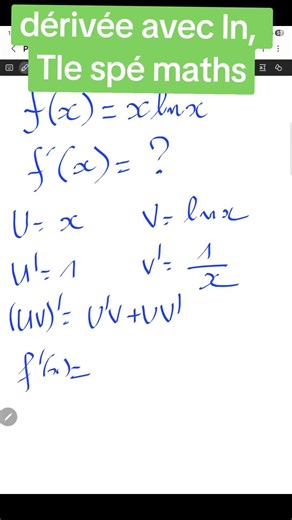 dérivée avec ln,
Tle spé maths
f(x) = x ln x
f'(x) = ?
U = x V = ln x
U' = 1 V' = 1/x
(UV)' = U'V + UV'
f'(x) =